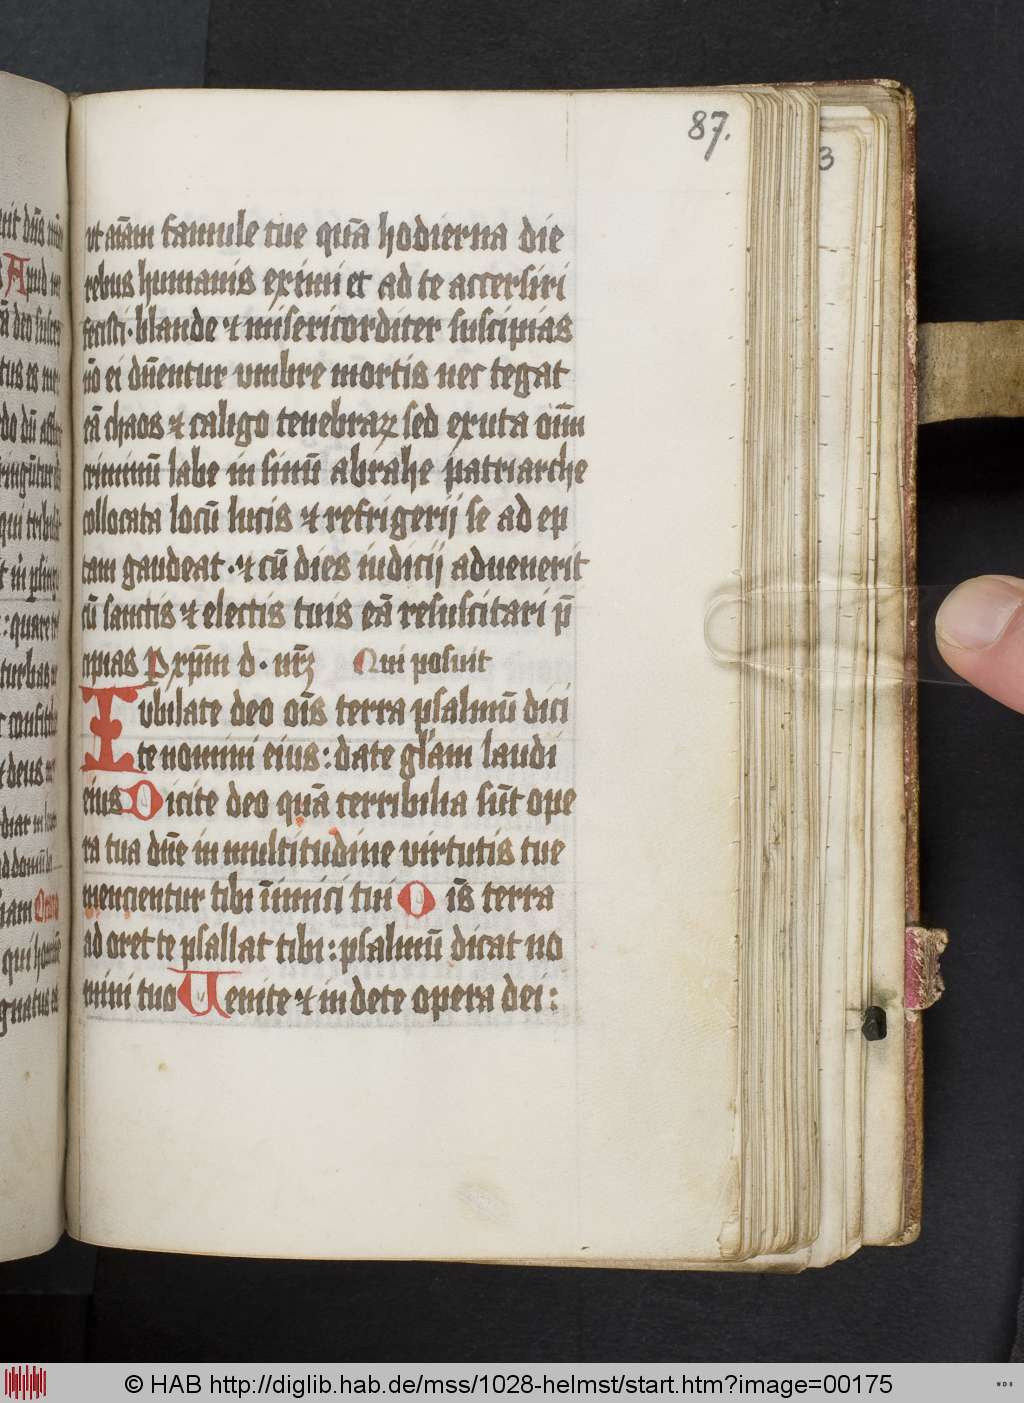 87.
3
ut aīam famule tue quā hodierna die
rebus humanis eximi et ad te accersiri
fecisti · blande ⁊ misericorditer suscipias
nō ei dn̄entur vmbre mortis nec tegat
eā chaos ⁊ caligo tenebraꝝ sed exuta oīm
criminū labe in sinū abrahe patriarche
collocata locū lucis ⁊ refrigerij se ad ep
tam gaudeat · ⁊ cū dies iudicij aduenerit
cū sanctis ⁊ electis tuis eā resuscitari p̄
cipias P xp̄m d · nr̄ꝫ Qui posuit
Iubilate deo oīs terra psalmū dici
te nomini eius : date gl̄am laudi
eius Dicite deo quā terribilia sūt ope
ra tua dn̄e in multitudine virtutis tue
mencientur tibi īimici tui Oīs terra
ad oret te psallat tibi : psalmū dicat no
mini tuo Uenite ⁊ indete opera dei :
© HAB http://diglib.hab.de/mss/1028-helmst/start.htm?image=00175